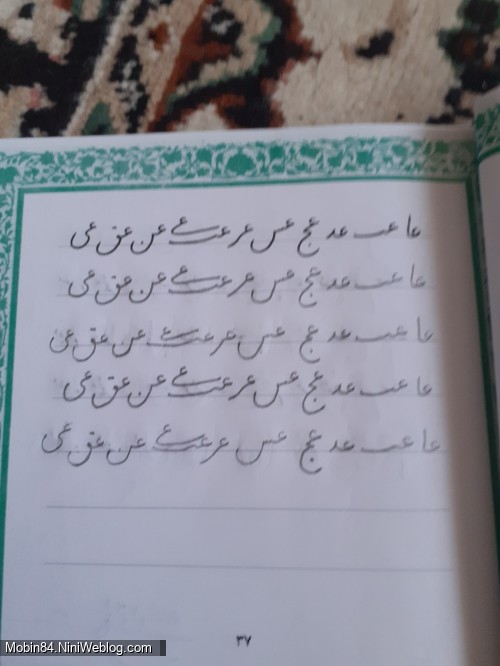 عا عب عد عج عس عر عے عن عق عی
عا عب عد عج عس عر عے عن عق عی
عا عب عد عج عس عر عے عن عق عی
عا عب عد عج عس عر عے عن عق عی
عا عب عد عج عس عر عے عن عق عی
۳۷
Mobin84.NiniWeblog.com